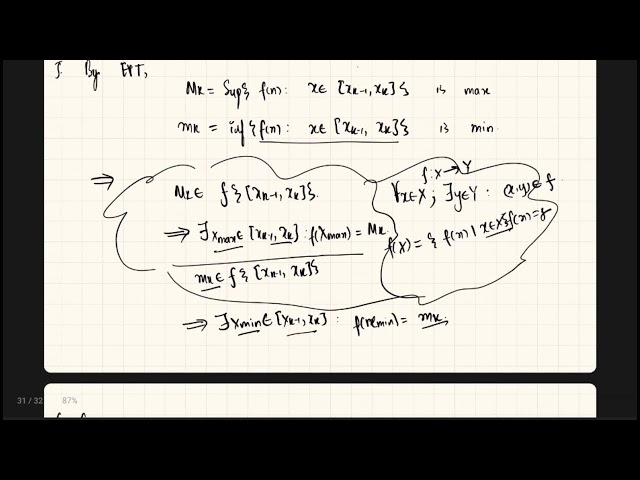 I. By EVT,
Mk = Sup{ f(x): x ∈ [xk-1, xk] } is max
mk = inf{ f(x): x ∈ [xk-1, xk] } is min.
⇒ Mk ∈ f{ [xk-1, xk] }.
⇒ ∃ xmax ∈ [xk-1, xk] : f(xmax) = Mk
mk ∈ f{ [xk-1, xk] }
⇒ ∃ xmin ∈ [xk-1, xk] : f(xmin) = mk.
f: X → Y
∀x∈X ; ∃y∈Y : (x,y) ∈ f
f(X) = { f(x) | x∈X } f(x)=y
31 / 32 87%